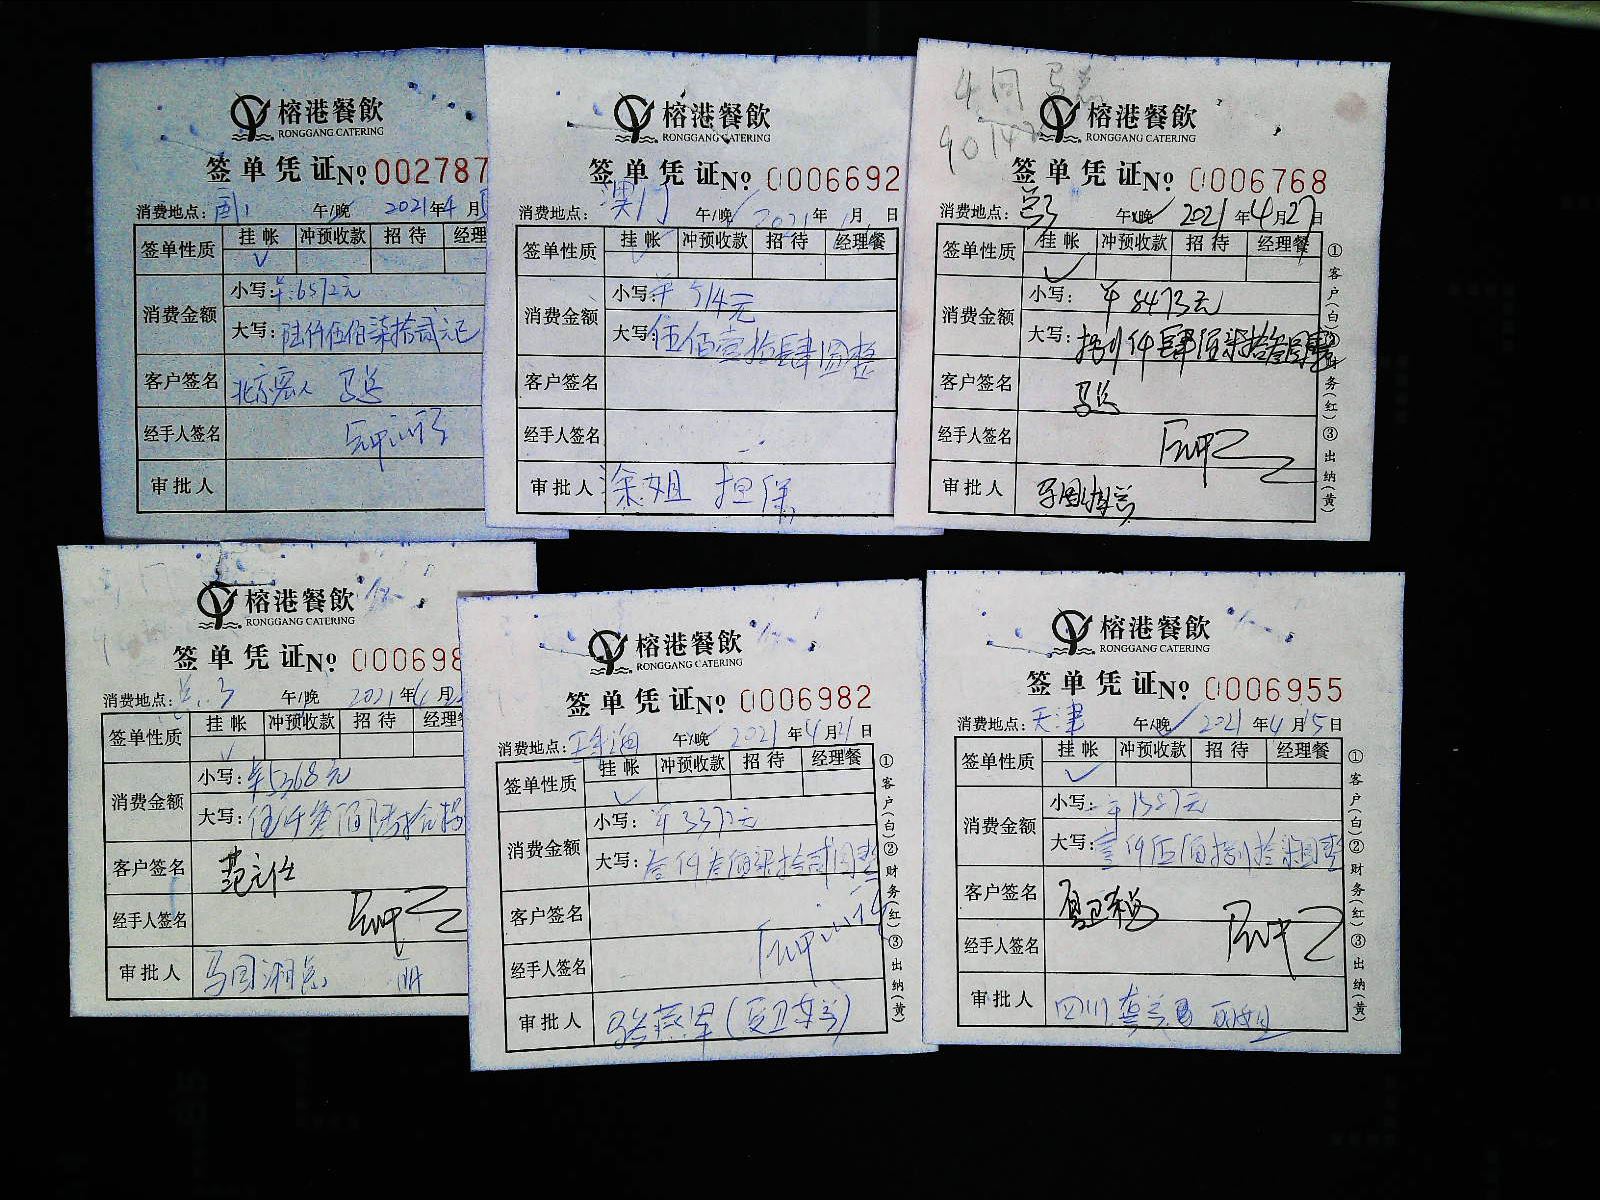 榕港餐飲
RONGGANG CATERING
签单凭证№ 002787
消费地点： 午/晚 2021年4月
签单性质 挂帐 冲预收款 招待 经理
✓
消费金额 小写：¥:6572元
大写：陆仟伍佰柒拾贰元
客户签名 北京客人 马总
经手人签名
审批人
榕港餐飲
RONGGANG CATERING
签单凭证№ 0006692
消费地点：澳门 午/晚 2021年 月 日
签单性质 挂帐 冲预收款 招待 经理餐
✓
消费金额 小写：¥514元
大写：伍佰壹拾肆圆整
客户签名
经手人签名
审批人 涂姐 担保
4
榕港餐飲
RONGGANG CATERING
签单凭证№ 0006768
消费地点： 午/晚 2021年4月27日
签单性质 挂帐 冲预收款 招待 经理餐
✓
消费金额 小写：¥8473元
大写：捌仟肆佰柒拾叁圆整
客户签名 马总
经手人签名
审批人
①客户(白)②财务(红)③出纳(黄)
榕港餐飲
RONGGANG CATERING
签单凭证№ 000698
消费地点： 午/晚 2021年4月
签单性质 挂帐 冲预收款 招待 经理餐
✓
消费金额 小写：¥5368元
大写：伍仟叁佰陆拾捌
客户签名 范主任
经手人签名
审批人 马国湘总
榕港餐飲
RONGGANG CATERING
签单凭证№ 0006982
消费地点： 午/晚 2021年4月21日
签单性质 挂帐 冲预收款 招待 经理餐
✓
消费金额 小写：¥3372元
大写：叁仟叁佰柒拾贰圆整
客户签名
经手人签名
审批人
①客户(白)②财务(红)③出纳(黄)
榕港餐飲
RONGGANG CATERING
签单凭证№ 0006955
消费地点：天津 午/晚 2021年4月15日
签单性质 挂帐 冲预收款 招待 经理餐
✓
消费金额 小写：¥1587元
大写：壹仟伍佰捌拾柒圆整
客户签名
经手人签名
审批人 四川龚总
①客户(白)②财务(红)③出纳(黄)